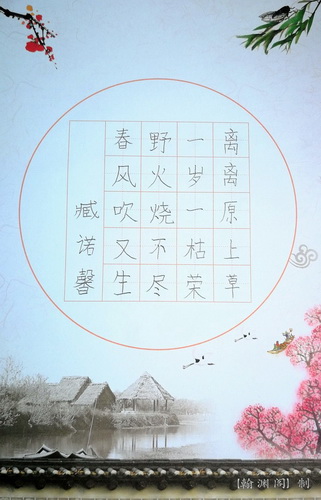 离离原上草
一岁一枯荣
野火烧不尽
春风吹又生
臧诺馨
【翰渊阁】制